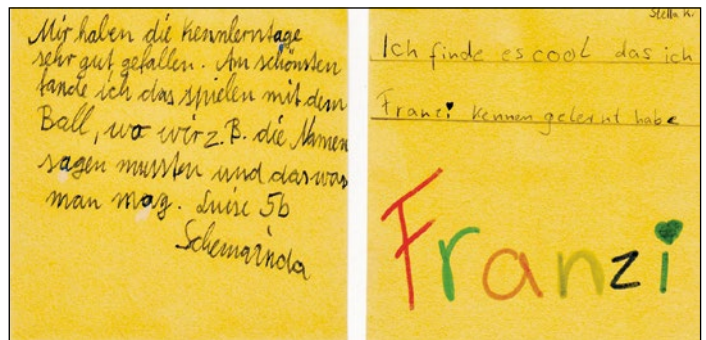 Mir haben die Kennlerntage
sehr gut gefallen. Am schönsten
fande ich das spielen mit dem
Ball, wo wir z.B. die Namen
sagen mussten und das was
man mag. Luise 5b
Schemarinda
Stella K.
Ich finde es cool das ich
Franzi kennen gelernt habe
Franzi